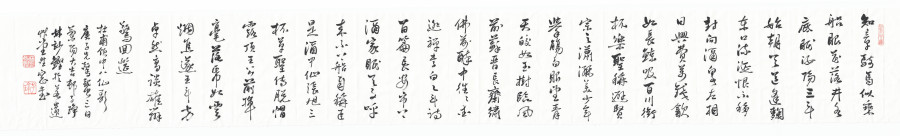 知章騎馬似乘
船眼花落井水
底眠汝陽三斗
始朝天道逢麴
車口流涎恨不移
封向酒泉左相
日興費萬錢飲
如長鯨吸百川銜
杯樂聖稱避賢
宗之瀟灑美少年
舉觴白眼望青
天皎如玉樹臨風
前蘇晉長齋繡
佛前醉中往往愛
逃禪李白一斗詩
百篇長安市上
酒家眠天子呼
來不上船自稱
臣是酒中仙張旭三
杯草聖傳脫帽
露頂王公前揮
毫落紙如雲
煙焦遂五斗方
卓然高談雄辯
驚四筵
杜甫飲中八仙歌